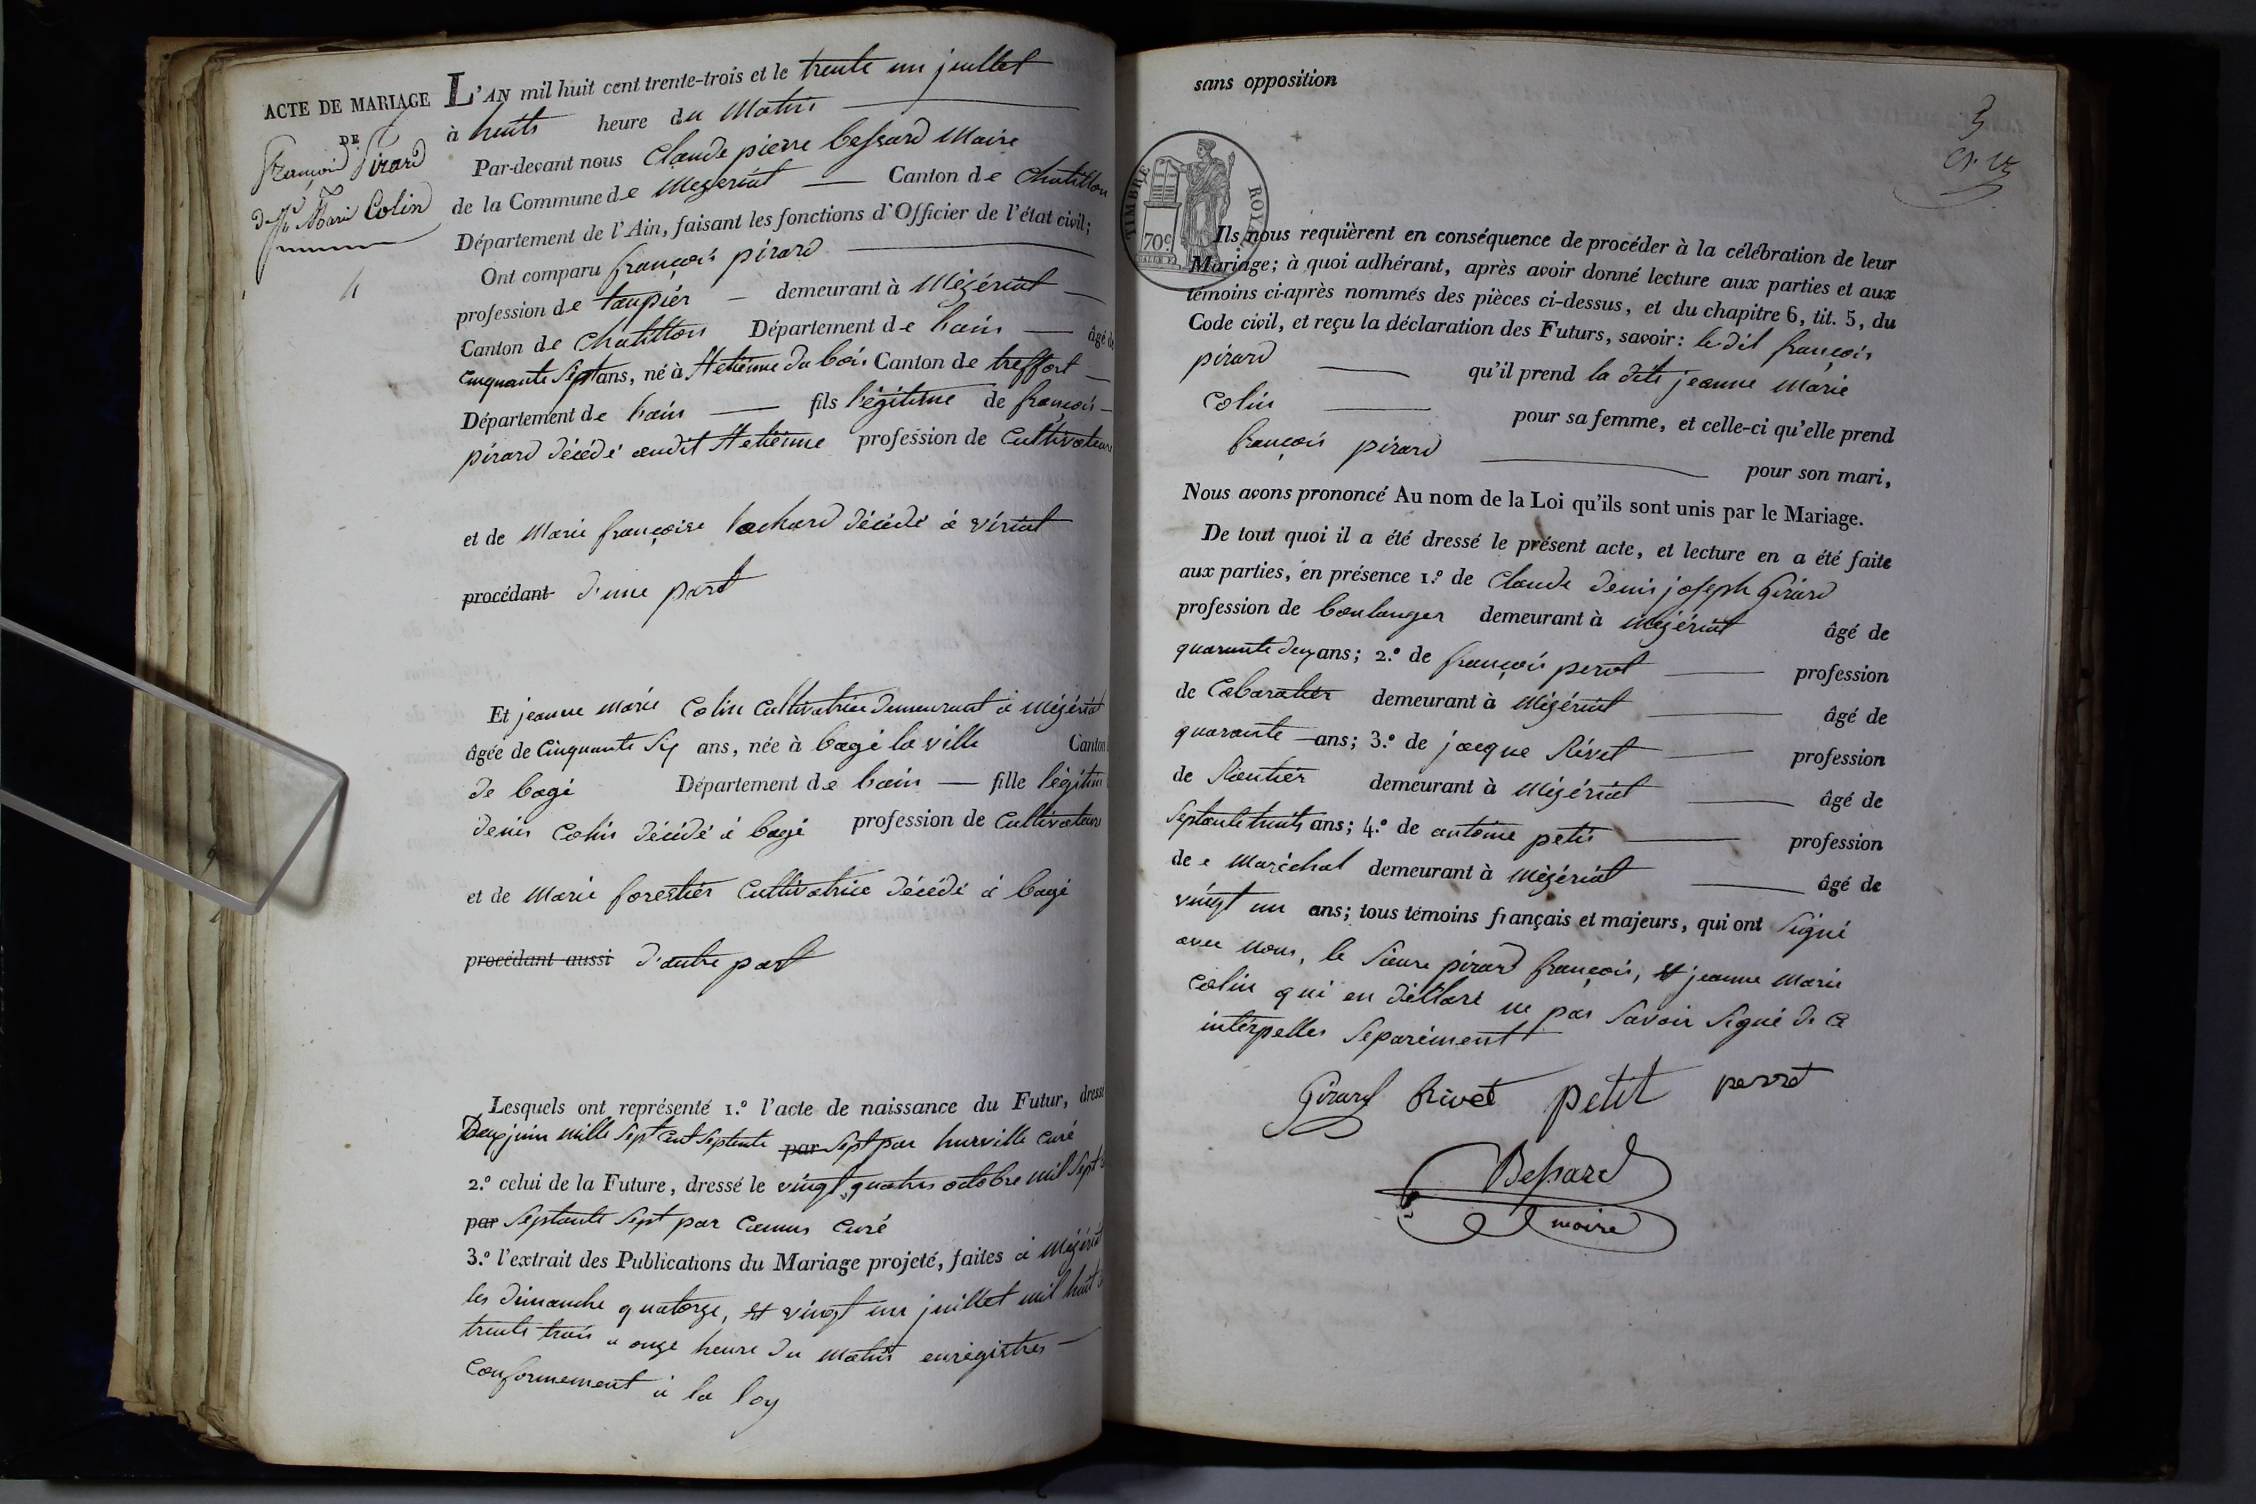 ACTE DE MARIAGE
DE
François Pirard
Marie Colin
4
L'AN mil huit cent trente-trois et le trente un juillet
à huits heure du Matin
Par-devant nous Claude pierre bessard Maire
de la Commune de Mezeriat Canton de Chatillon
Département de l'Ain, faisant les fonctions d'Officier de l'état civil;
Ont comparu françois pirard
profession de taupier demeurant à Mézériat
Canton de Chatillon Département de lain âgé de
Cinquante Sept ans, né à St etienne du bois Canton de treffort
Département de lain fils légitime de françois
pirard décédé audit St etienne profession de Cultivateur
et de Marie françoise décédé à viriat
procédant d'une part
Et jeanne marie Colin Cultivatrice demeurant à Mézériat
âgée de Cinquante Six ans, née à bagé la ville Canton
de bagé Département de lain fille légitim
denis Colin décédé à bagé profession de Cultivateur
et de Marie forestier Cultivatrice décédé à bagé
procédant aussi d'autre part
Lesquels ont représenté 1.º l'acte de naissance du Futur, dressé
Deux juin mille Sept Cent Septante par Sept par curé
2.º celui de la Future, dressé le vingt quatre octobre mil Sept
par Septante Sept par Camus Curé
3.º l'extrait des Publications du Mariage projeté, faites à Mézériat
les dimanche quatorze, et vingt un juillet mil huit
trente trois a onze heure du matin enregistres
Conformement à la loy
sans opposition
TIMBRE ROYAL
70c
Ils nous requièrent en conséquence de procéder à la célébration de leur
Mariage; à quoi adhérant, après avoir donné lecture aux parties et aux
témoins ci-après nommés des pièces ci-dessus, et du chapitre 6, tit. 5, du
Code civil, et reçu la déclaration des Futurs, savoir: le dit françois
pirard qu'il prend la dite jeanne Marie
Colin pour sa femme, et celle-ci qu'elle prend
françois pirard pour son mari,
Nous avons prononcé Au nom de la Loi qu'ils sont unis par le Mariage.
De tout quoi il a été dressé le présent acte, et lecture en a été faite
aux parties, en présence 1.º de Claude denis joseph Girard
profession de boulanger demeurant à Mézériat âgé de
quarante deux ans; 2.º de françois perret profession
de Cabaratier demeurant à Mézériat âgé de
quarante ans; 3.º de jacque Rivet profession
de Rentier demeurant à Mézériat âgé de
Septante huits ans; 4.º de antoine petit profession
de Maréchal demeurant à Mézériat âgé de
vingt un ans; tous témoins français et majeurs, qui ont Signé
avec nous, le Sieure pirard françois, et jeanne Marie
Colin qui on déclaré ne pas Savoir Signé de ce
interpelles Separément
Girard Rivet petit perret
Bessard
maire